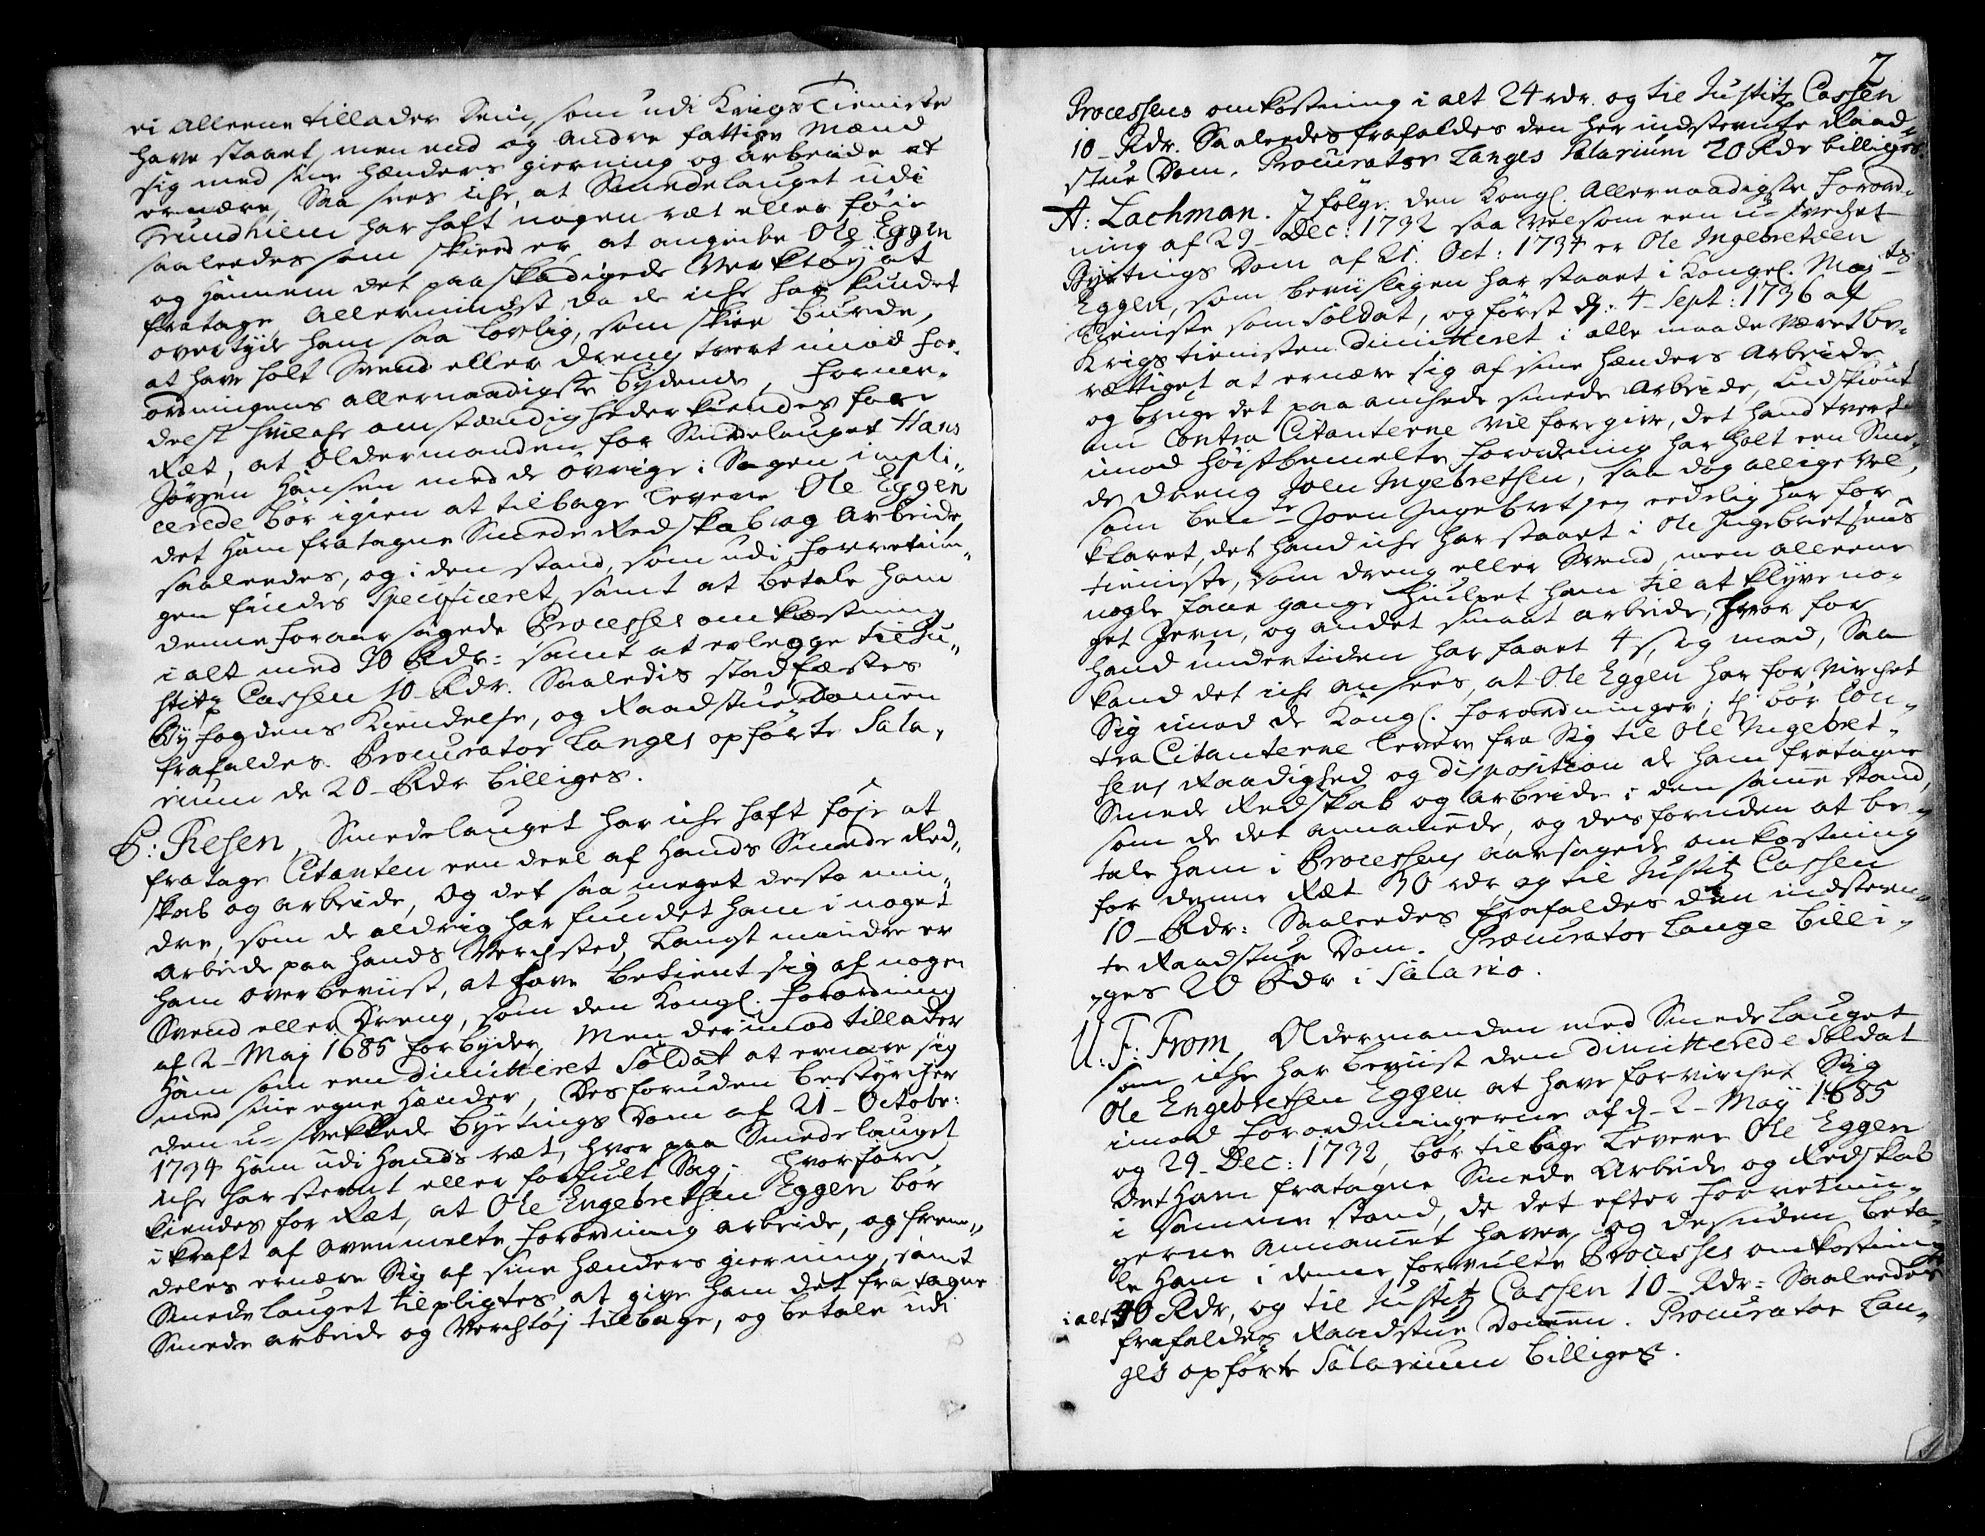 ei alleene tillader dem, som udi Krigs Tieniste
have staaet, men end og andre fattige Mænd
sig med sine hænders gierning og arbeide at
ernære, Saa sees iche, at Smedelauget udi
Trundhiem har haft nogen ræt eller føie
saaleedes som skeed er, at angribe Ole Eggen
og hannem det paaskadigede Verktøy at
fratage, allermindst, da de iche har kundet
overtyde ham saa lovlig, som skee burde,
at have holt Svend eller dreng tvert imod For-
ordningens allernaadigste bydende, forme-
delst hvilche omstændigheder kiendes for
Ræt, at Oldermanden for Smedelauget Hans
Jørgen Hansen med de øvrige i Sagen impli-
cerede bør igien at tilbage levere Ole Eggen
det ham fratagne Smede Redskab og Arbeide,
saaleedes, og i den stand, som udi forretnin-
gen findes Specificeret, samt at betale ham
denne foraarsagede Processes omkostning
i alt med 30 Rdr: samt at erlegge til Ju-
stitz Cassen 10 Rdr. Saaledis stadfæstes
Byfogdens Kiendelse, og Raadstue Dommen
frafaldes. Procurator Langes opførte Sala-
rium de 20 Rdr billiges.
P: Resen, Smedelauget har iche haft føje at
fratage Citanten een deel af hands Smede Red-
skab og arbeide, og det saa meget desto min-
dre, som de aldrig har fundet ham i noget
arbeide paa hands Verchsted, langt mindre er
ham overbeviist, at have betient sig af nogen
Svend eller Dreng, som den Kongl. Forordning
af 2 Maj 1685 forbyder, Men derimod tillader
ham som een dimitteret Soldat at ernære sig
med sine egne hænder, Desforuden bestyrcher
den u-svekkede Byetings Dom af 21 Octobr:
1734 ham udi hands ræt, hvor paa Smedelauget
iche har stevnt eller forfult Sag; hvorfore
kiendes for Ræt, at Ole Engebretsen Eggen bør
i kraft af ovenmelte forordning arbeide, og frem-
deles ernære Sig af sine hænders gierning, samt
Smedelauget tilpligtes at give ham det fratagne
Smede arbeide og Verchtøj tilbage, og betale udi
7
Processens omkostning i alt 24 rdr. og til Justitz Cassen
10 Rdr. Saaleedes frafaldes den her indstevnte Raad-
stue Dom. Procurator Langes Salarium 20 Rdr billiges.
A: Lachman. I følge den Kongl. Allernaadigste Forord-
ning af 29 Dec: 1732 saa vel som een u-svechet
Byetings Dom af 21. Oct: 1734 er Ole Ingebretsen
Eggen, som beviisligen har staaet i Kongel. Mayts
Tieniste som Soldat, og først d: 4 Sept: 1736 af
Krigs tienisten dimitteret i alle maade været be-
rættiget at ernære sig af sine hænders Arbeide
og bruge det paa anchede smede Arbeide, Endskiønt
om Contra Citanterne vil foregive, det hand tvert
imod høistbemelte forordning har holt een Sme-
de dreng Joen Ingebretsen, saa dog alligevel,
som bente Joen Ingebretsen eedelig har for
klaret, det hand iche har staaet i Ole Ingebretsens
tieniste, som dreng eller Svend, men alleene
nogle faae gange hiulpet ham til at klyve no-
get Jern, og andet smaat arbeide, hvor for
hand undertiden har faaet 4 s, og mad, Saa
kand det iche ansees, at Ole Eggen har forvirchet
Sig imod de Kongl. forordninger; thi bør Con-
tra Citanterne levere fra sig til Ole Ingebret-
sens Raadighed og disposition de ham fratagne
Smede Redskab og arbeide i den samme stand,
som de det annamede, og desforuden at be-
tale ham i Processens aarsagede omkostning
for denne Ræt 30 rdr og til Justitz Cassen
10 Rdr: Saaleedes frafaldes den indstevn-
te Raadstue Dom. Procurator Lange billi-
ges 20 Rdr i Salario.
U: F: From, Oldermanden med Smedelauget
som iche har beviist den dimitterede Soldat
Ole Engebretsen Eggen at have forvirchet Sig
imod forordningerne af d. 2 Maij 1685
og 29 Dec: 1732, bør tilbage levere Ole Eggen
det ham fratagne Smede Arbeide og Redskab
i samme stand, de det efter forretnin-
gerne annammet haver, og desuden beta-
le ham i denne forvulte Processes omkostning
i alt 30 Rdr, og til Justitz Cassen 10 Rdr: Saaleedes
frafaldes Raadstue Dommen. Procurator Lan-
ges opførte Salarium billiges.